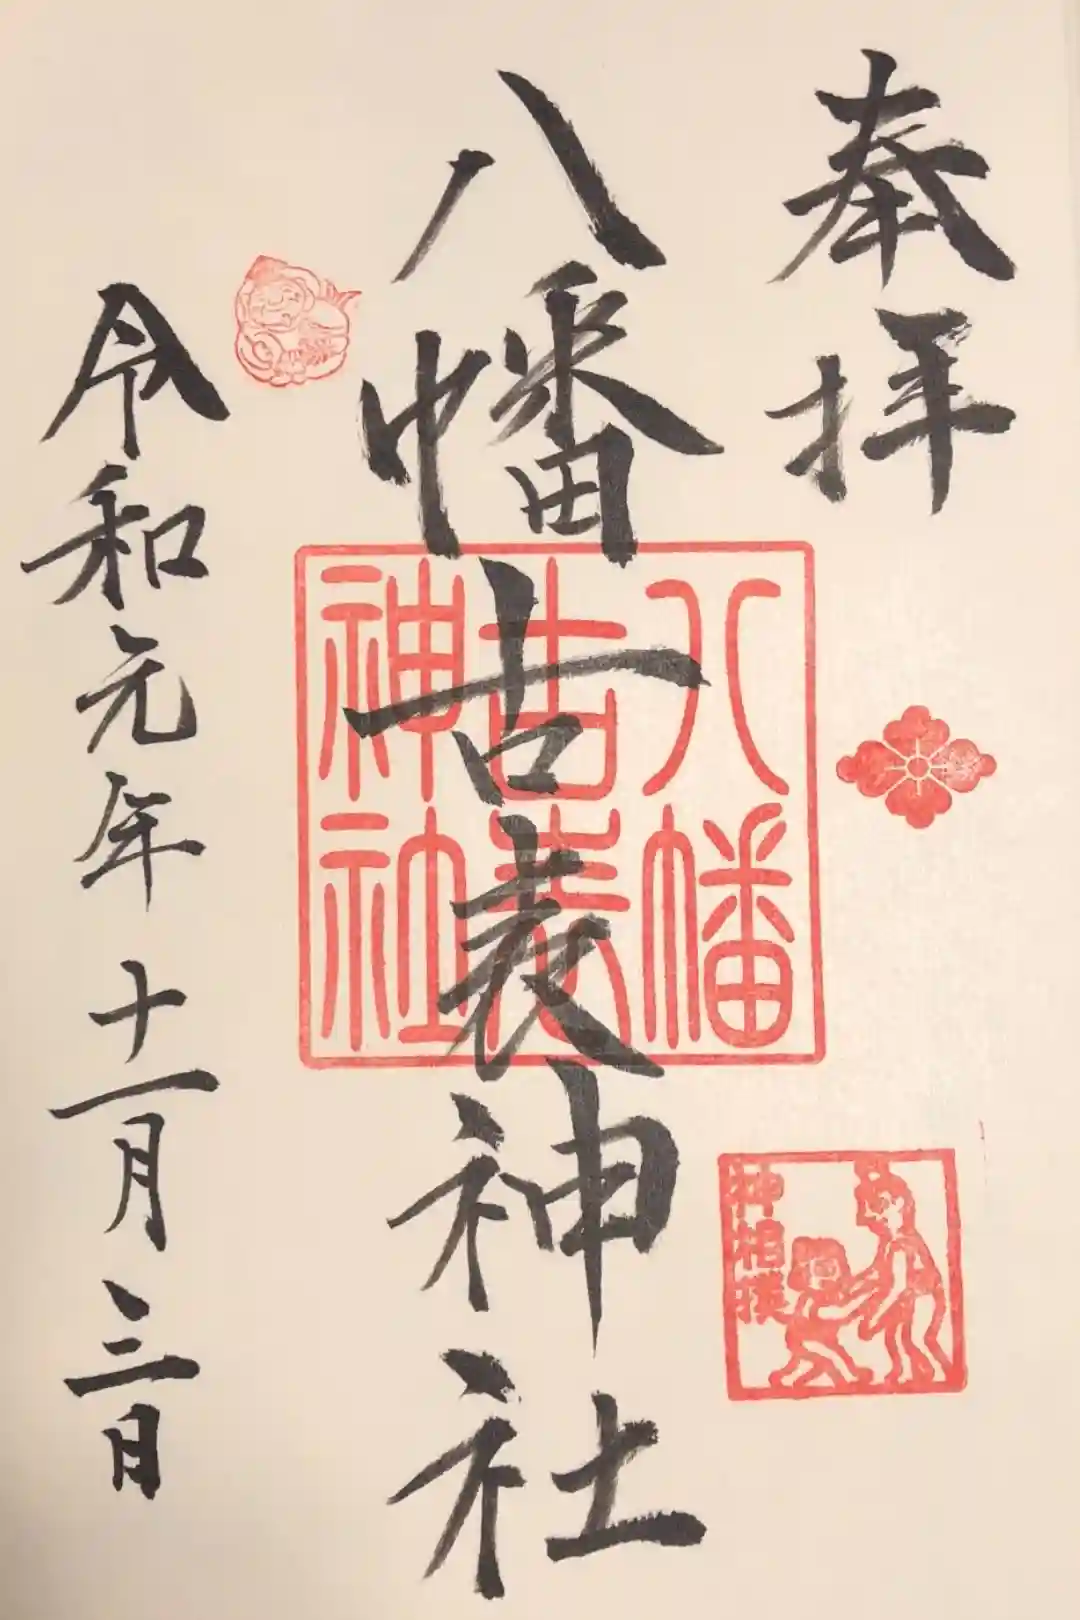 奉拝
八幡古表神社
八幡
古表
神社
神相撲
令和元年十一月三日